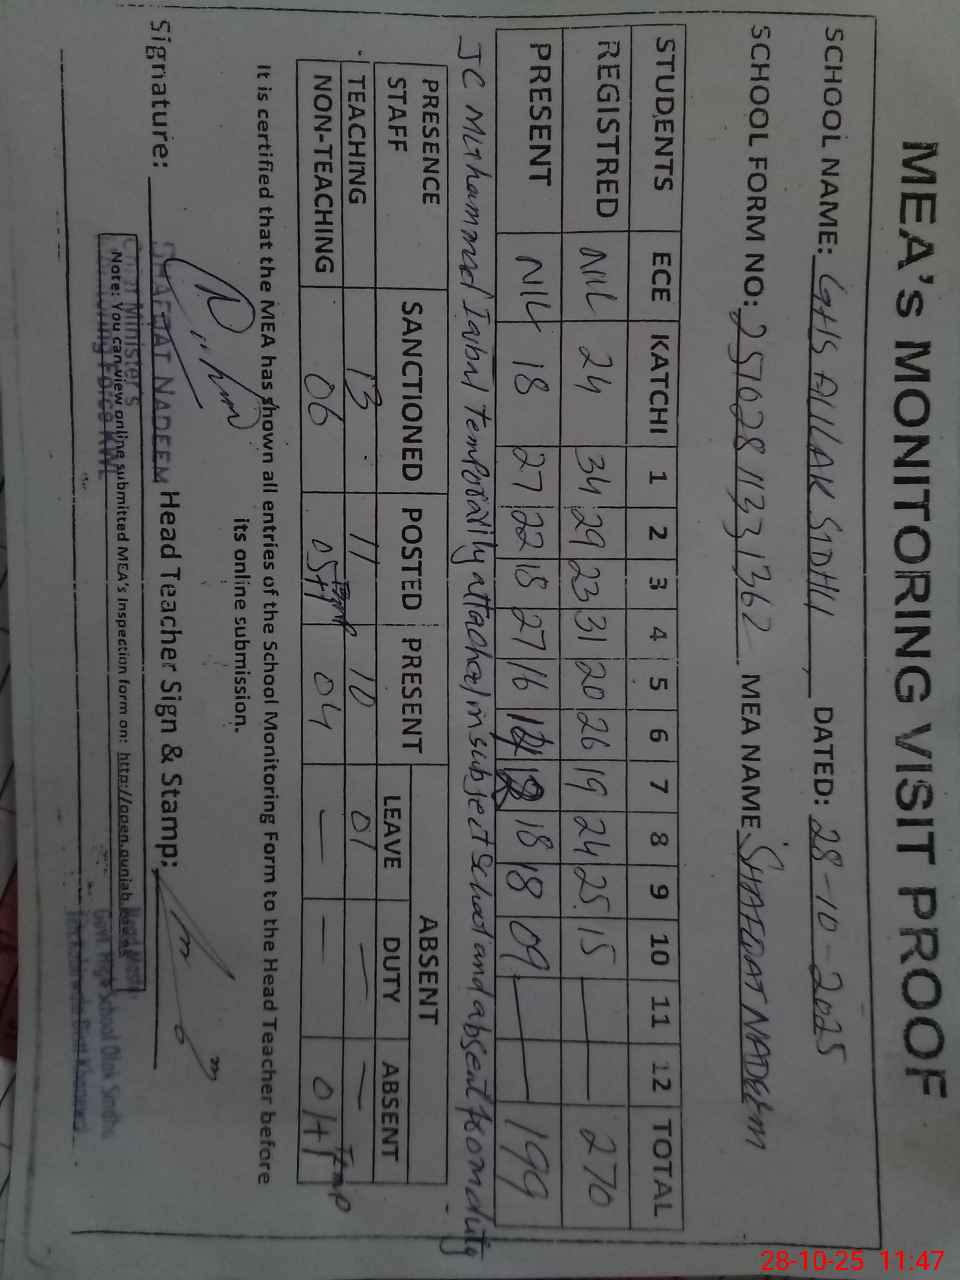 MEA's MONITORING VISIT PROOF
SCHOOL NAME: GHS AULAK SIDHU, DATED: 28-10-2025
SCHOOL FORM NO: 257028 1133 1362 MEA NAME SHAFQAT NADEEM
STUDENTS ECE KATCHI 1 2 3 4 5 6 7 8 9 10 11 12 TOTAL
REGISTRED NIL 24 34 29 23 31 20 26 19 24 25 15 — — 270
PRESENT NIL 18 27 22 18 27 16 18 18 09 — — 199
JC Muhammad Iqbal temporarily attached in subject school and absent from duty
PRESENCE STAFF SANCTIONED POSTED PRESENT ABSENT
LEAVE DUTY ABSENT
TEACHING 13 11 10 01 — —
NON-TEACHING 06 05+1 Temp 04 — — 01+1 Temp
It is certified that the MEA has shown all entries of the School Monitoring Form to the Head Teacher before
its online submission.
Signature: Head Teacher Sign & Stamp:
SHAFQAT NADEEM
Note: You can view online submitted MEA's Inspection form on: http://open.punjab
Chief Minister's
Monitoring Force KWL
Govt High School Olak Sindhu
28-10-25 11:47